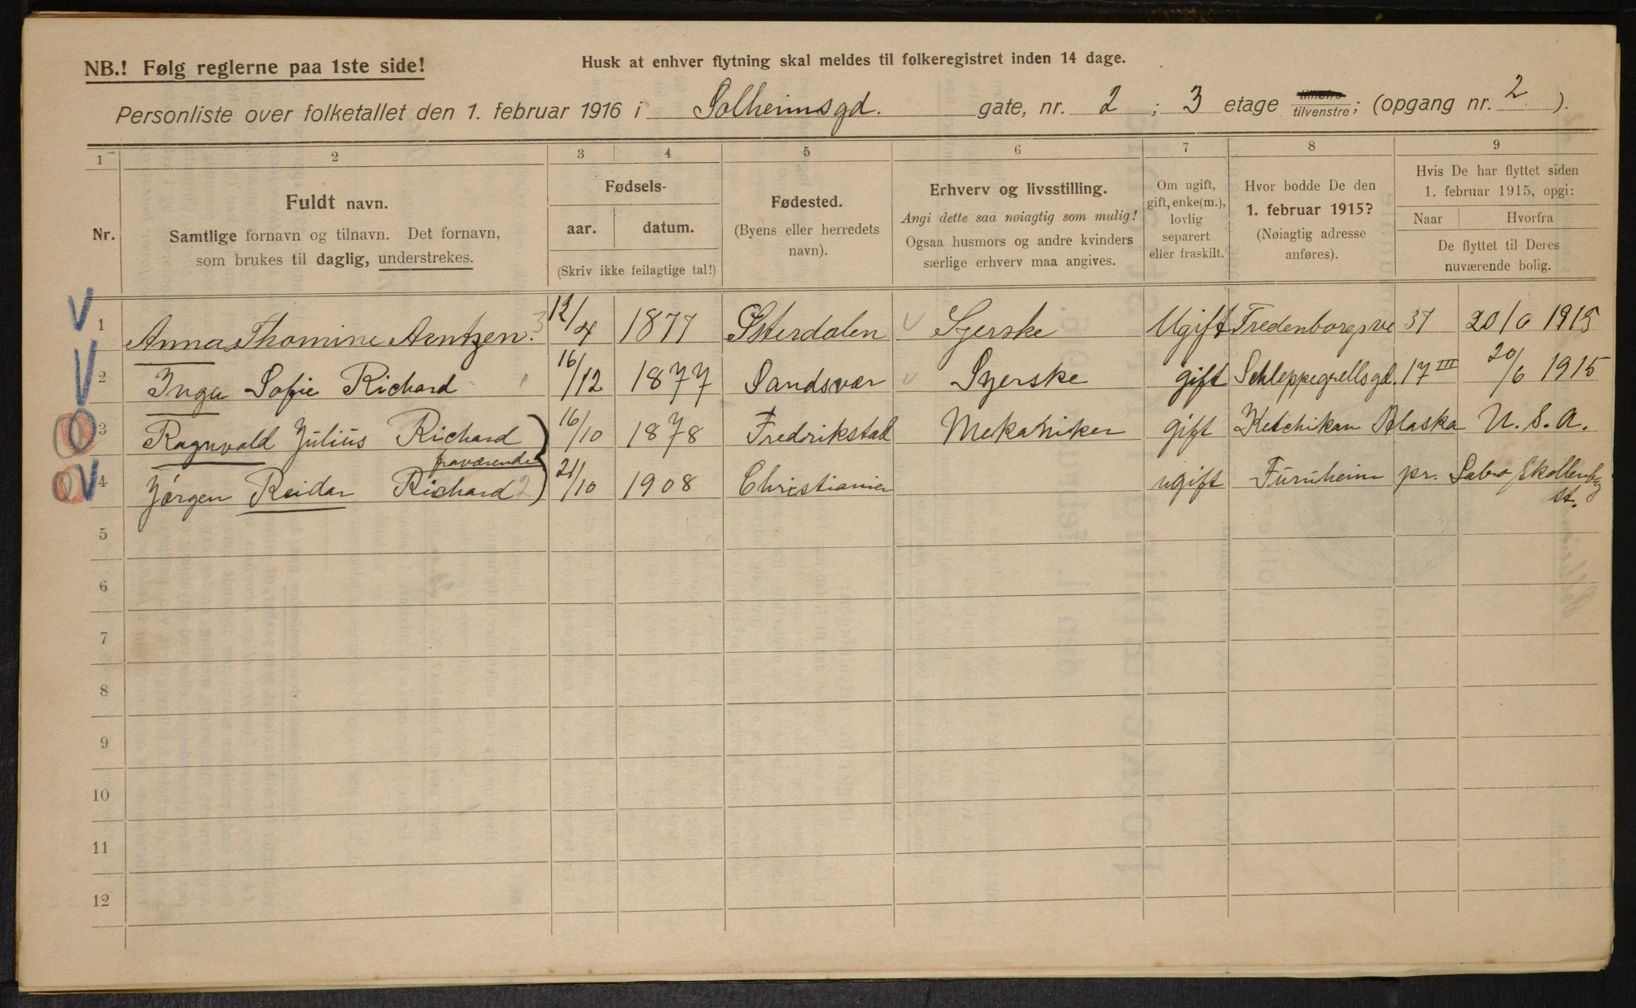 NB.! Følg reglerne paa 1ste side!
Husk at enhver flytning skal meldes til folkeregistret inden 14 dage.
Personliste over folketallet den 1. februar 1916 i Solheimsgd. gate, nr. 2 ; 3 etage tilhøire tilvenstre; (opgang nr. 2 ).
1 2 3 4 5 6 7 8 9
Nr.
Fuldt navn.
Samtlige fornavn og tilnavn. Det fornavn,
som brukes til daglig, understrekes.
Fødsels-
aar. datum.
(Skriv ikke feilagtige tal!)
Fødested.
(Byens eller herredets
navn).
Erhverv og livsstilling.
Angi dette saa nøiagtig som mulig!
Ogsaa husmors og andre kvinders
særlige erhverv maa angives.
Om ugift,
gift, enke(m.),
lovlig
separert
eller fraskilt.
Hvor bodde De den
1. februar 1915?
(Nøiagtig adresse
anføres).
Hvis De har flyttet siden
1. februar 1915, opgi:
Naar Hvorfra
De flyttet til Deres
nuværende bolig.
1 Anna Thomine Arntzen. 3 12/4 1877 Østerdalen Syerske Ugift Fredenborgsve 37 20/6 1915
2 Inga Sofie Richard 1 16/12 1877 Sandsvær Syerske gift Schleppegrellsgd. 17 III 20/6 1915
3 Ragnvald Julius Richard 16/10 1878 Fredrikstad Mekaniker gift Ketchikan Alaska U.S.A.
fraværende
4 Jørgen Reidar Richard 2 21/10 1908 Christiania ugift Furuheim pr. Labro Skollenborg
st.
5
6
7
8
9
10
11
12